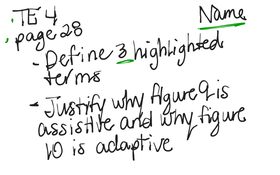 TE 4 Name
page 28
- Define 3 highlighted
terms
- Justify why figure 9 is
assistive and why figure
10 is adaptive